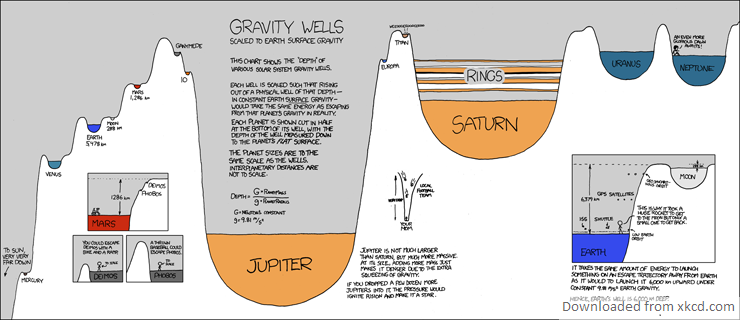 GRAVITY WELLS
SCALED TO EARTH SURFACE GRAVITY
THIS CHART SHOWS THE "DEPTH" OF
VARIOUS SOLAR SYSTEM GRAVITY WELLS.
EACH WELL IS SCALED SUCH THAT RISING
OUT OF A PHYSICAL WELL OF THAT DEPTH—
IN CONSTANT EARTH SURFACE GRAVITY—
WOULD TAKE THE SAME ENERGY AS ESCAPING
FROM THAT PLANET'S GRAVITY IN REALITY.
EACH PLANET IS SHOWN CUT IN HALF
AT THE BOTTOM OF ITS WELL, WITH THE
DEPTH OF THE WELL MEASURED DOWN
TO THE PLANET'S FLAT SURFACE.
THE PLANET SIZES ARE TO THE
SAME SCALE AS THE WELLS.
INTERPLANETARY DISTANCES ARE
NOT TO SCALE.
DEPTH =
G × PLANETMASS
g × PLANETRADIUS
G = NEWTON'S CONSTANT
g = 9.81 m/s²
TO SUN,
VERY VERY
FAR DOWN
MERCURY
VENUS
EARTH
5,478 km
MOON
288 km
MARS
1,286 km
GANYMEDE
IO
1286 km
DEIMOS
PHOBOS
MARS
YOU COULD ESCAPE
DEIMOS WITH A
BIKE AND A RAMP.
DEIMOS
A THROWN
BASEBALL COULD
ESCAPE PHOBOS.
PHOBOS
JUPITER
EUROPA
TITAN
RINGS
SATURN
LOCAL
FOOTBALL
TEAM
YOUR
MOM
JUPITER IS NOT MUCH LARGER
THAN SATURN, BUT MUCH MORE MASSIVE.
AT ITS SIZE, ADDING MORE MASS JUST
MAKES IT DENSER DUE TO THE EXTRA
SQUEEZING OF GRAVITY.
IF YOU DROPPED A FEW DOZEN MORE
JUPITERS INTO IT, THE PRESSURE WOULD
IGNITE FUSION AND MAKE IT A STAR.
URANUS
AN EVEN MORE
GLORIOUS DAWN
AWAITS!
NEPTUNE
MOON
GPS SATELLITES
6,379 km
THIS IS WHY IT TOOK A
HUGE ROCKET TO GET
TO THE MOON BUT ONLY A
SMALL ONE TO GET BACK.
ISS
SHUTTLE
LOW EARTH
ORBIT
EARTH
IT TAKES THE SAME AMOUNT OF ENERGY TO LAUNCH
SOMETHING ON AN ESCAPE TRAJECTORY AWAY FROM EARTH
AS IT WOULD TO LAUNCH IT 6,000 km UPWARD UNDER
CONSTANT 9.81 m/s² EARTH GRAVITY.
HENCE, EARTH'S WELL IS 6,000 km DEEP.
Downloaded from xkcd.com